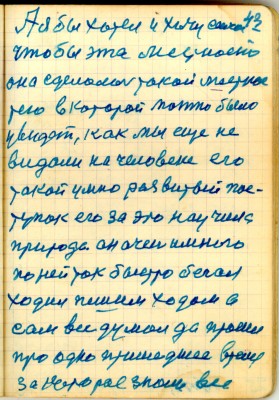 42
А я бы хотел и хочу самой
чтобы эта местность
она сделалась такой местнос
тею в которой можно было
увидет, как мы еще не
видали на человеке его
такой умно развитый пос-
тупок его за это научила
природа он очен много
по ней так быстро бегал
ходил пешим ходом а
сам все думал да прошел
про одно пришедшее время
за которое знали все